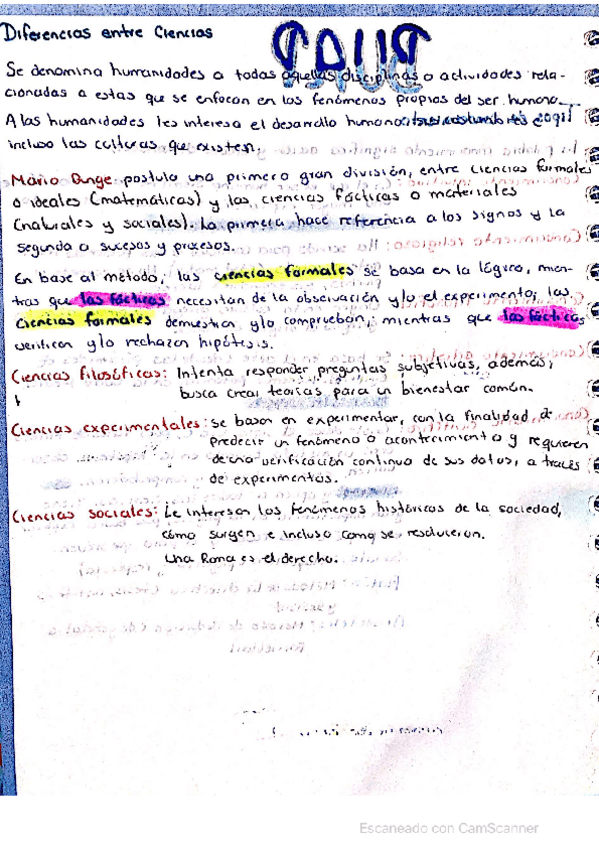 Diferencias entre Ciencias
Se denomina humanidades a todas aquellas disciplinas o actividades rela-
cionadas a estas que se enfocan en los fenómenos propios del ser humano.
A las humanidades les interesa el desarrollo humano,
incluso las culturas que existen.
Mario Bunge postula una primera gran división, entre ciencias formales
o ideales (matemáticas) y las ciencias fácticas o materiales
(naturales y sociales). La primera hace referencia a los signos y la
segunda a sucesos y procesos.
En base al método, las ciencias formales se basa en la lógica, mien-
tras que las fácticas necesitan de la observación y/o el experimento; las
ciencias formales demuestran y/o comprueban, mientras que las fácticas
verifican y/o rechazan hipótesis.
Ciencias filosóficas: Intenta responder preguntas subjetivas, además,
busca crear teorías para un bienestar común.
Ciencias experimentales: se basan en experimentar, con la finalidad d
predecir un fenómeno o acontecimiento y requieren
de una verificación continua de sus datos, a través
de experimentos.
Ciencias sociales: Le interesan los fenómenos históricos de la sociedad,
cómo surgen e incluso como se resolvieron.
Una Rama es el derecho.
Escaneado con CamScanner